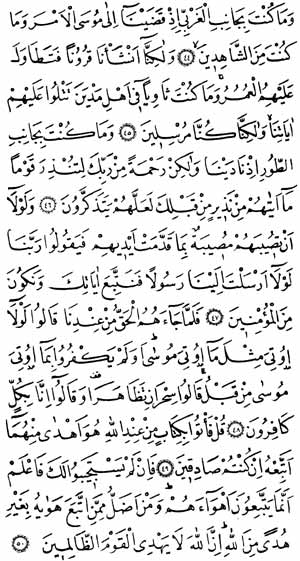 وَمَا كُنْتَ بِجَانِبِ الْغَرْبِيِّ اِذْ قَضَيْنَٓا اِلٰى مُوسَى الْاَمْرَ وَمَا
كُنْتَ مِنَ الشَّاهِد۪ينَۙ ﴿٤٤﴾ وَلٰكِنَّٓا اَنْشَأْنَا قُرُونًا فَتَطَاوَلَ
عَلَيْهِمُ الْعُمُرُۚ وَمَا كُنْتَ ثَاوِيًا ف۪ٓي اَهْلِ مَدْيَنَ تَتْلُوا عَلَيْهِمْ
اٰيَاتِنَاۙ وَلٰكِنَّا كُنَّا مُرْسِل۪ينَ ﴿٤٥﴾ وَمَا كُنْتَ بِجَانِبِ
الطُّورِ اِذْ نَادَيْنَا وَلٰكِنْ رَحْمَةً مِنْ رَبِّكَ لِتُنْذِرَ قَوْمًا
مَٓا اَتٰيهُمْ مِنْ نَذ۪يرٍ مِنْ قَبْلِكَ لَعَلَّهُمْ يَتَذَكَّرُونَ ﴿٤٦﴾ وَلَوْلَٓا
اَنْ تُص۪يبَهُمْ مُص۪يبَةٌ بِمَا قَدَّمَتْ اَيْد۪يهِمْ فَيَقُولُوا رَبَّنَا
لَوْلَٓا اَرْسَلْتَ اِلَيْنَا رَسُولًا فَنَتَّبِعَ اٰيَاتِكَ وَنَكُونَ
مِنَ الْمُؤْمِن۪ينَ ﴿٤٧﴾ فَلَمَّا جَٓاءَهُمُ الْحَقُّ مِنْ عِنْدِنَا قَالُوا لَوْلَٓا
اُو۫تِيَ مِثْلَ مَٓا اُو۫تِيَ مُوسٰىۜ اَوَلَمْ يَكْفُرُوا بِمَٓا اُو۫تِيَ
مُوسٰى مِنْ قَبْلُۚ قَالُوا سِحْرَانِ تَظَاهَرَا۠ وَقَالُٓوا اِنَّا بِكُلٍّ
كَافِرُونَ ﴿٤٨﴾ قُلْ فَأْتُوا بِكِتَابٍ مِنْ عِنْدِ اللّٰهِ هُوَ اَهْدٰى مِنْهُمَٓا
اَتَّبِعْهُ اِنْ كُنْتُمْ صَادِق۪ينَ ﴿٤٩﴾ فَاِنْ لَمْ يَسْتَج۪يبُوا لَكَ فَاعْلَمْ
اَنَّمَا يَتَّبِعُونَ اَهْوَٓاءَهُمْۜ وَمَنْ اَضَلُّ مِمَّنِ اتَّبَعَ هَوٰيهُ بِغَيْرِ
هُدًى مِنَ اللّٰهِۜ اِنَّ اللّٰهَ لَا يَهْدِي الْقَوْمَ الظَّالِم۪ينَ۟ ﴿٥٠﴾